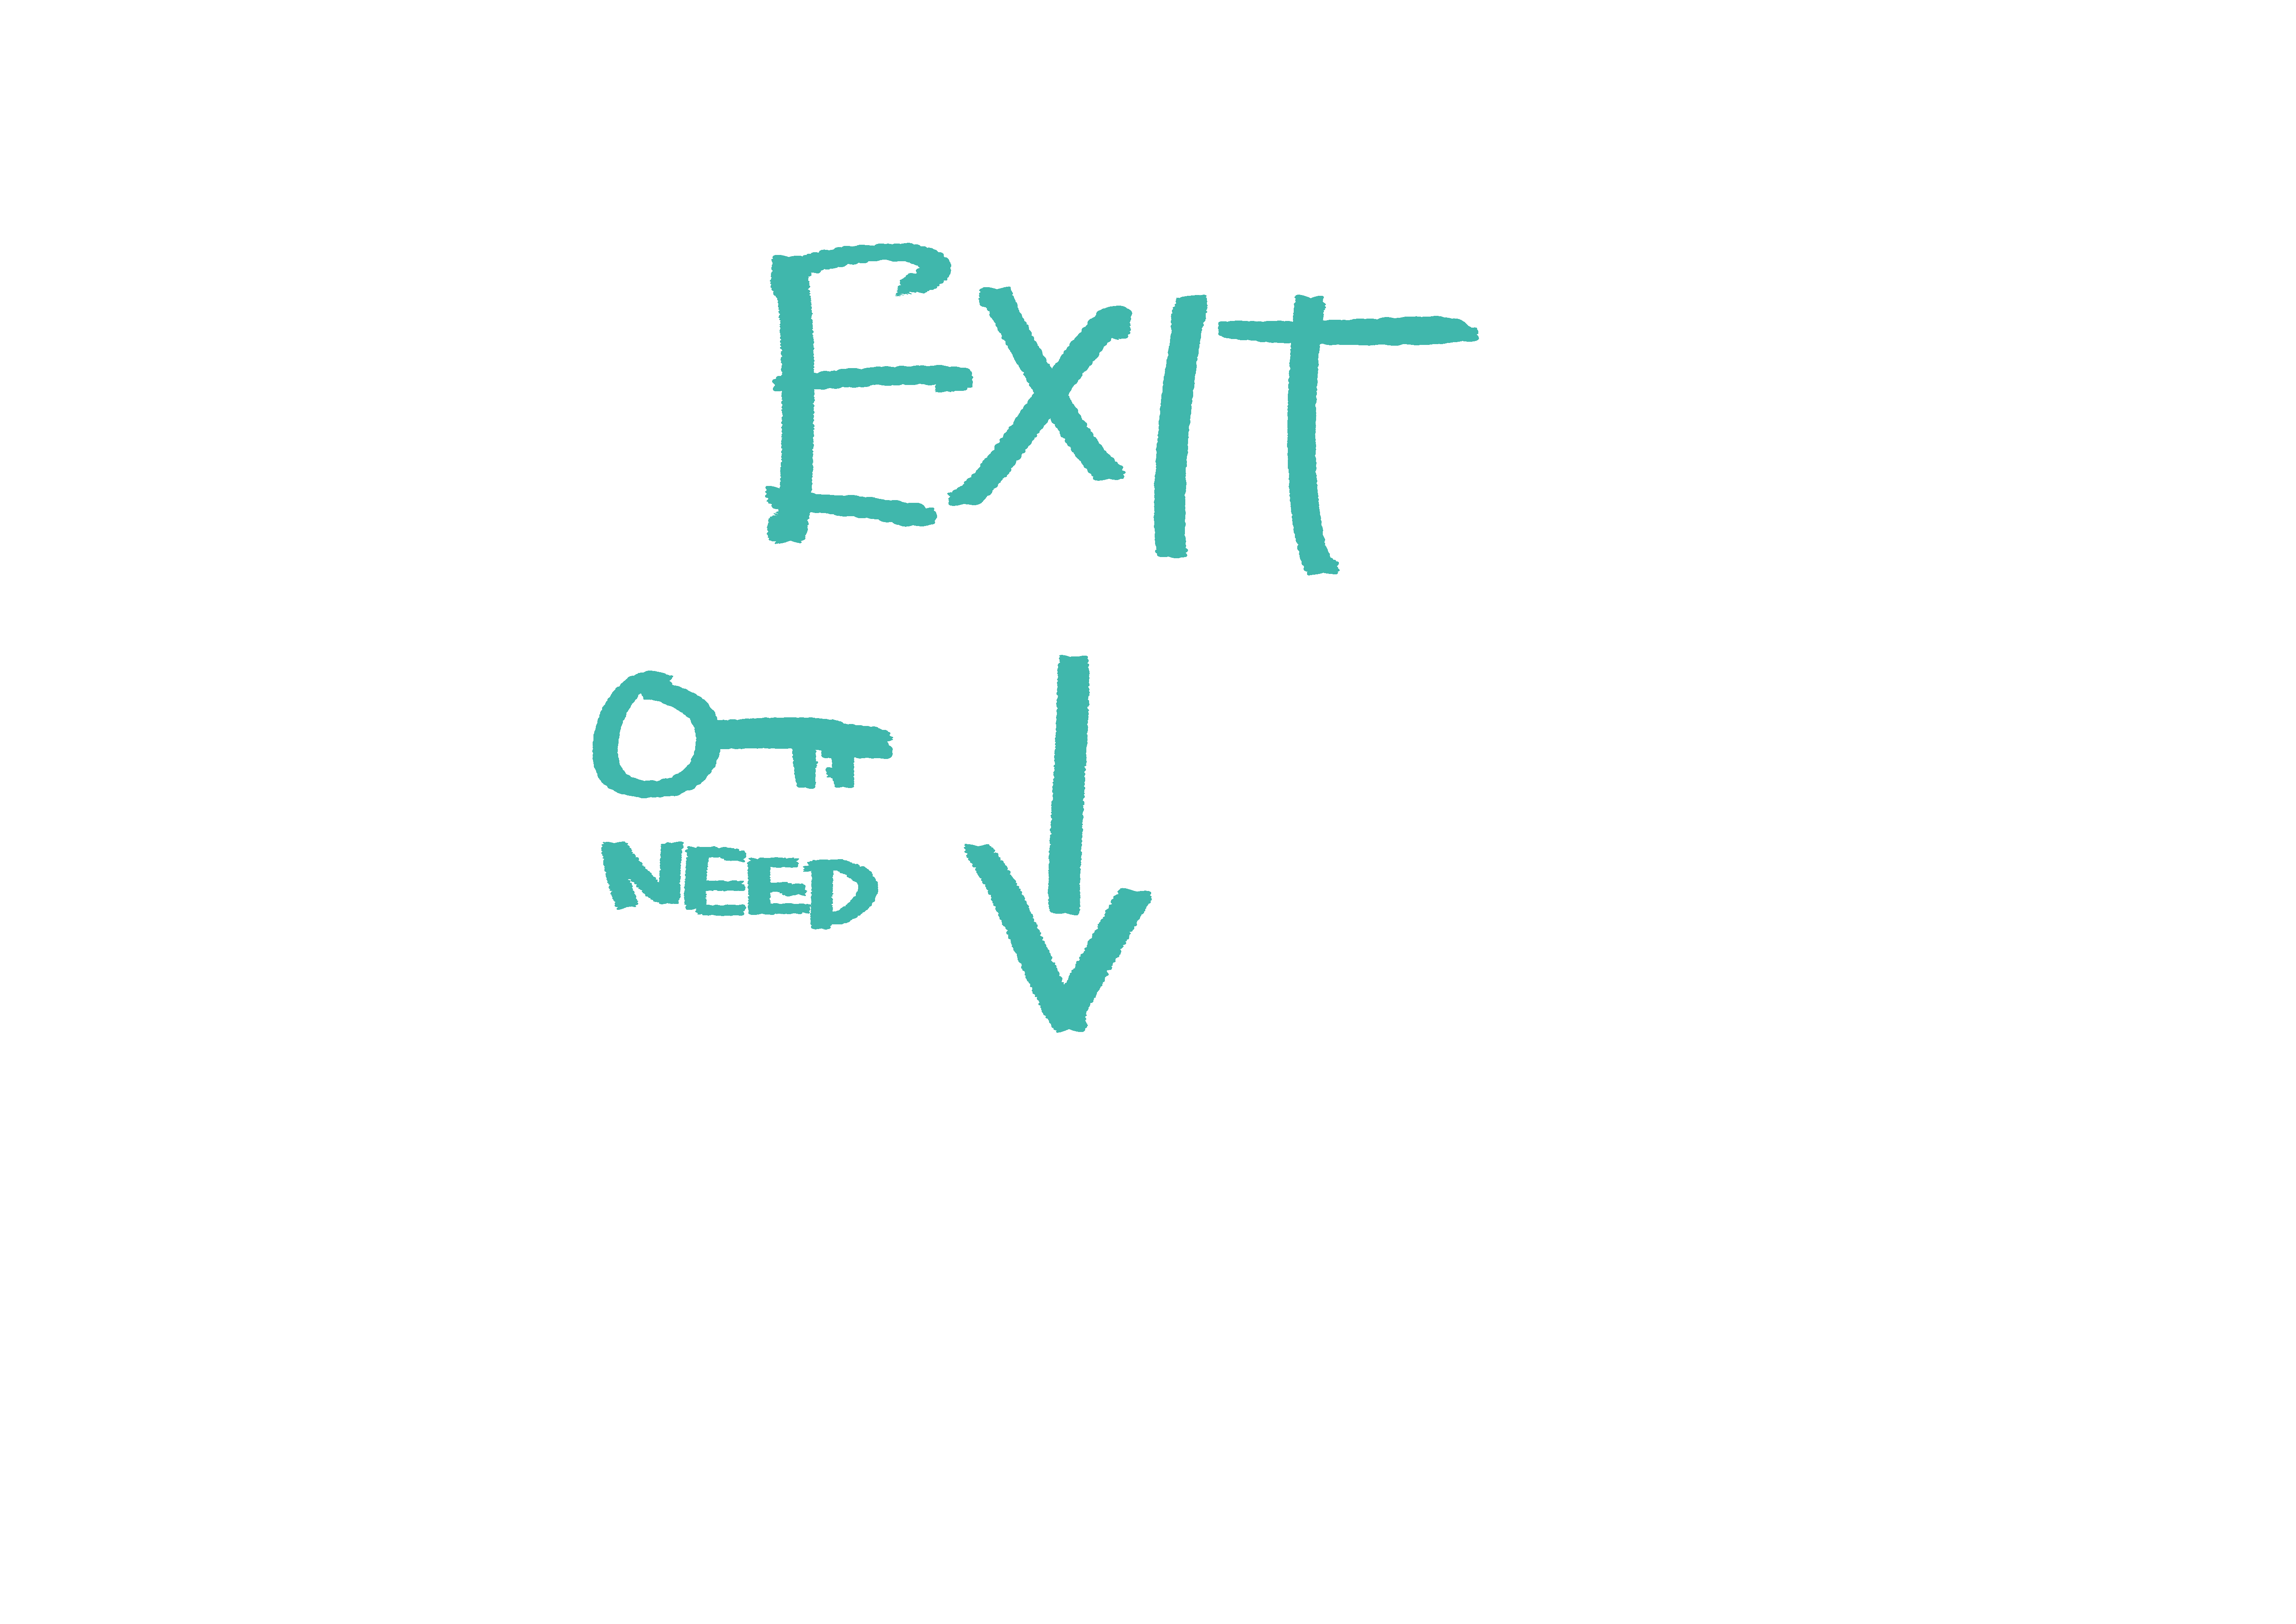 EXIT
NEED